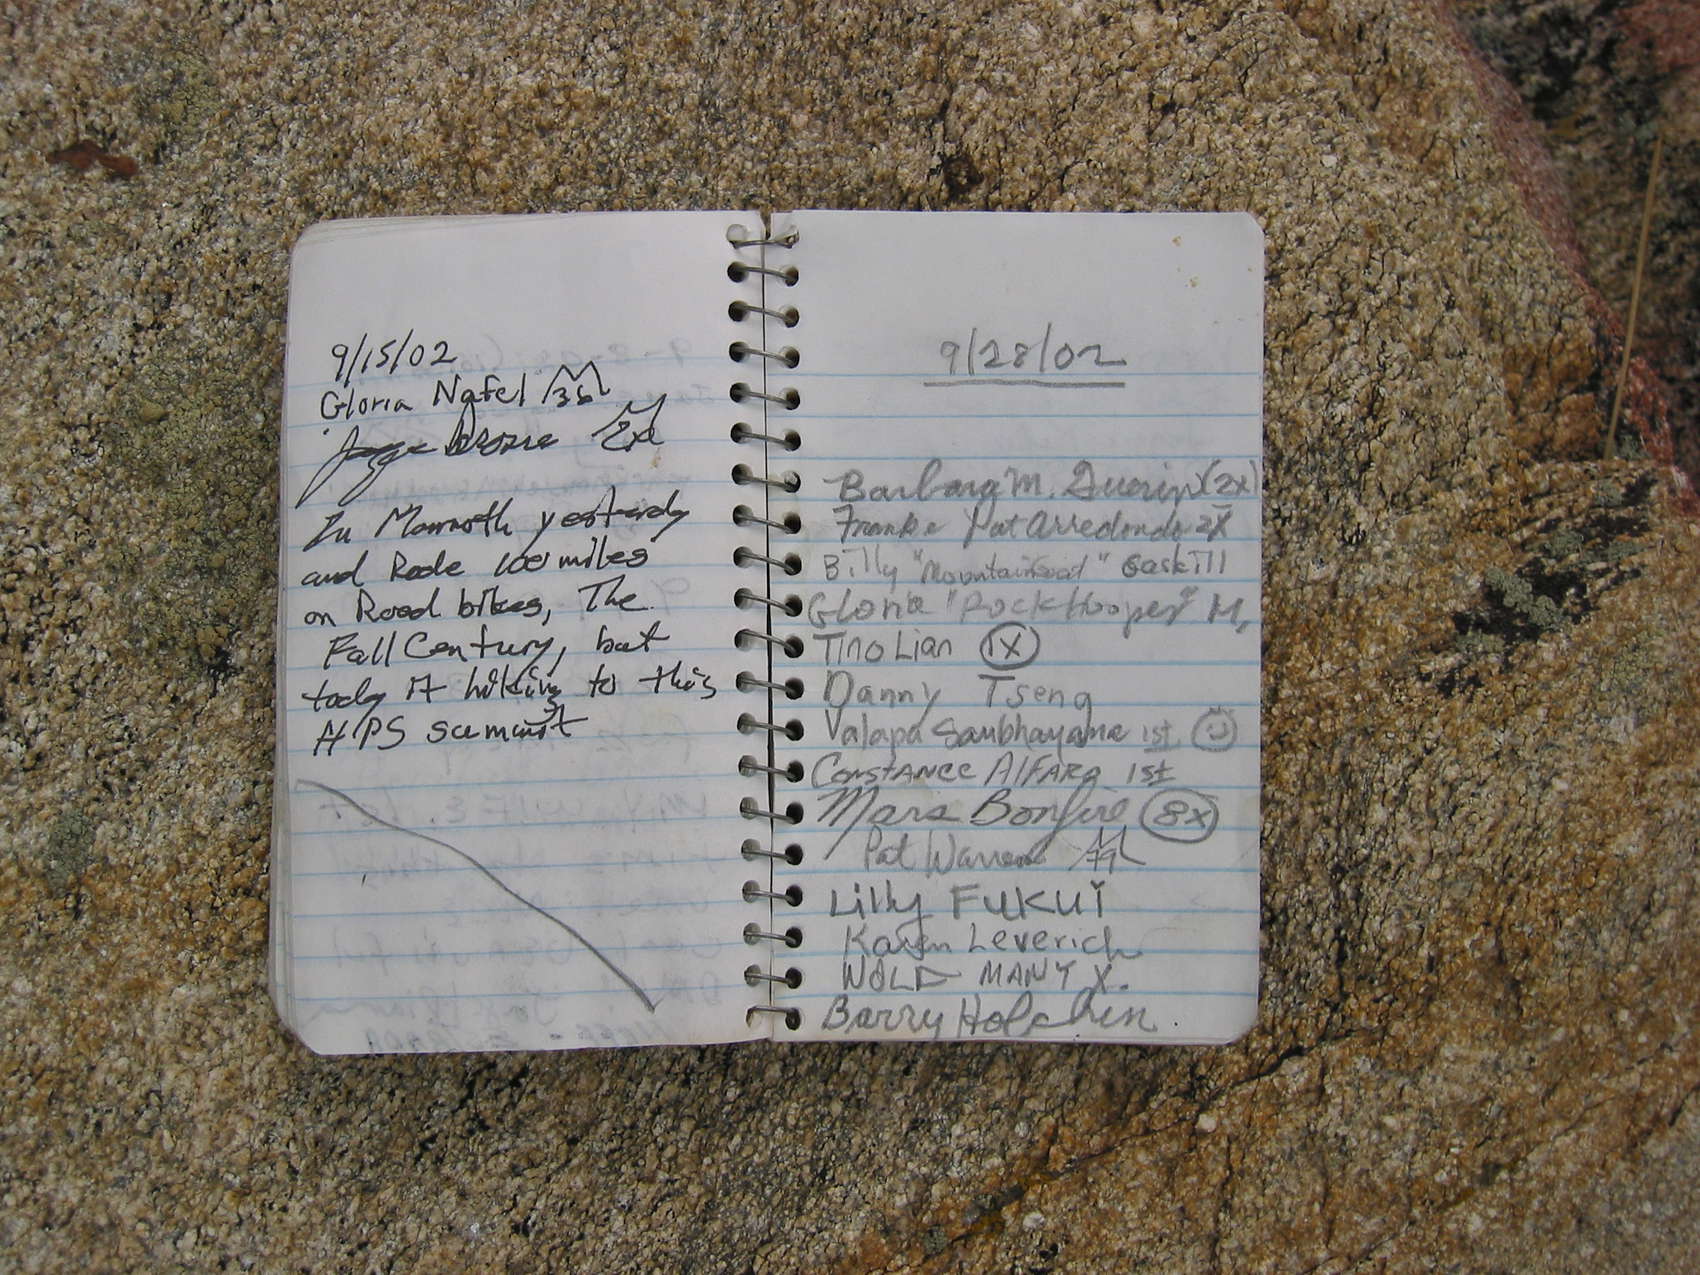 9/15/02
Gloria Nafel 36
2x
In Mammoth yesterday
and Rode 100 miles
on Road bikes, The
Fall Century, but
today it hiking to this
HPS summit
9/28/02
Barbara M. Guerin (2x)
Frank & Pat Arredondo 2X
Billy "MountainGoat" Gaskill
Gloria "RockHopper" M.
Tino Lian 1X
Danny Tseng
Valapa Saubhayana 1st
CONSTANCE AlFARO 1st
Mars Bonfire 8x
Pat Warren
Lilly FUKUI
Karen Leverich
WOLF MANY X.
Barry Holchin